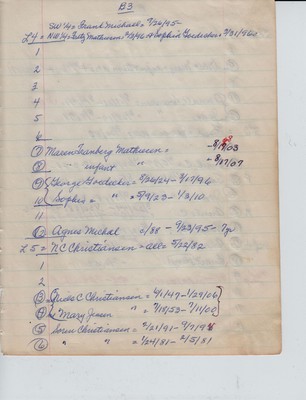 B3
SW¼ = Frank Michael = 7/26/95-
L4 = NW¼ = Fritz Mathiesen = 8/2/96 + Sophie Goedecker = 3/31/960
1
2
3
4
5
6
7 Maren Tranberg Mathiesen = - 8/11/03
8 " infant " - 8/17/07
9 George Goedecker = 5/20/24 - 3/17/96
10 Sophie = " = 5/9/23 - 1/3/10
11
12 Agnes Michal 0/88 - 9/23/95 - 7yr
L5 = N.C Christiansen = all = 5/22/82
1
2
3 C Christiansen = 6/1/47 - 1/29/06
4 Mary Jensen " 7/18/53 - 7/11/08
5 Soren Christiansen = 5/21/91 - 9/7/98
6 " " = 1/24/81 - 2/5/81